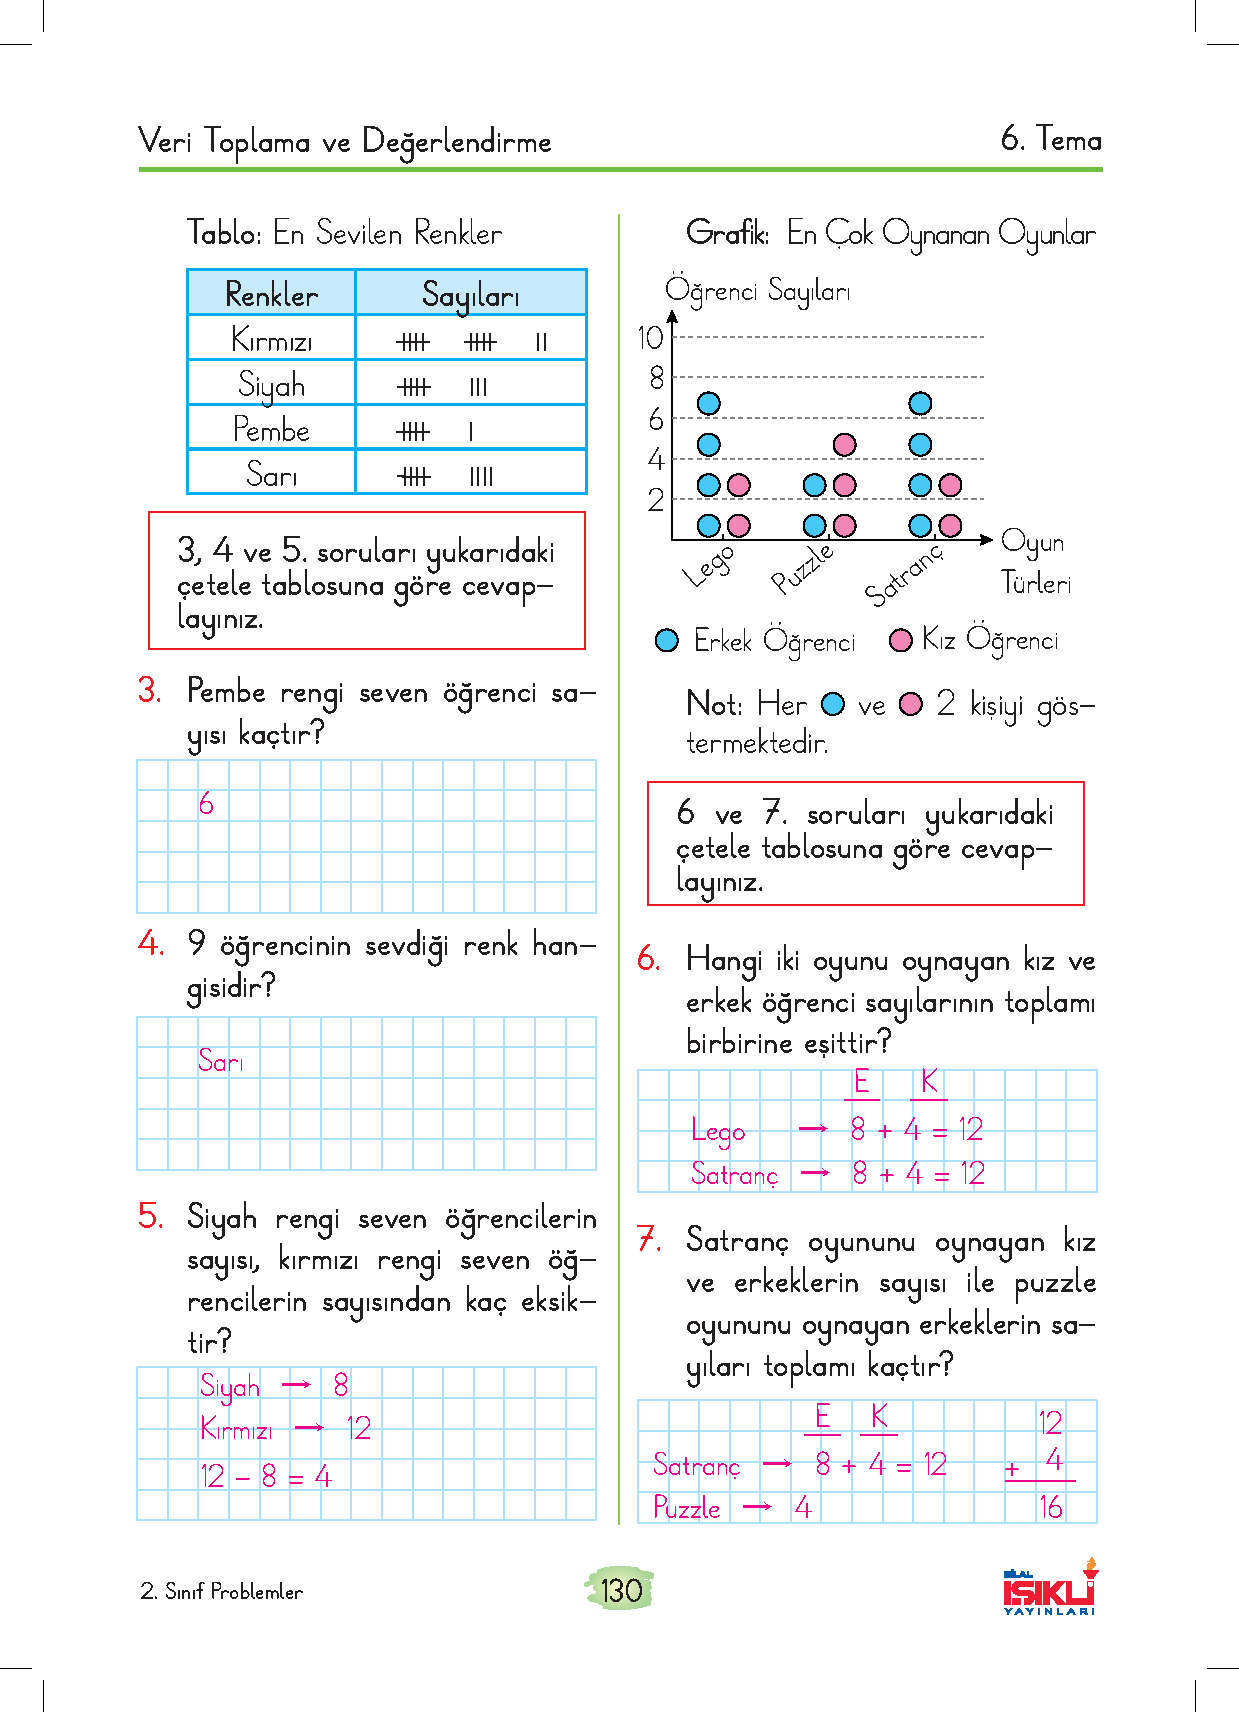 Veri Toplama ve Değerlendirme
6. Tema
Tablo: En Sevilen Renkler
Renkler Sayıları
Kırmızı
Siyah
Pembe
Sarı
3, 4 ve 5. soruları yukarıdaki
çetele tablosuna göre cevap-
layınız.
3. Pembe rengi seven öğrenci sa-
yısı kaçtır?
6
4. 9 öğrencinin sevdiği renk han-
gisidir?
Sarı
5. Siyah rengi seven öğrencilerin
sayısı, kırmızı rengi seven öğ-
rencilerin sayısından kaç eksik-
tir?
Siyah → 8
Kırmızı → 12
12 - 8 = 4
Grafik: En Çok Oynanan Oyunlar
Öğrenci Sayıları
10
8
6
4
2
Lego Puzzle Satranç
Oyun
Türleri
Erkek Öğrenci Kız Öğrenci
Not: Her ve 2 kişiyi gös-
termektedir.
6 ve 7. soruları yukarıdaki
çetele tablosuna göre cevap-
layınız.
6. Hangi iki oyunu oynayan kız ve
erkek öğrenci sayılarının toplamı
birbirine eşittir?
E K
Lego → 8 + 4 = 12
Satranç → 8 + 4 = 12
7. Satranç oyununu oynayan kız
ve erkeklerin sayısı ile puzzle
oyununu oynayan erkeklerin sa-
yıları toplamı kaçtır?
E K 12
Satranç → 8 + 4 = 12 + 4
Puzzle → 4 16
2. Sınıf Problemler
130
BİLAL
IŞIKLI
YAYINLARI